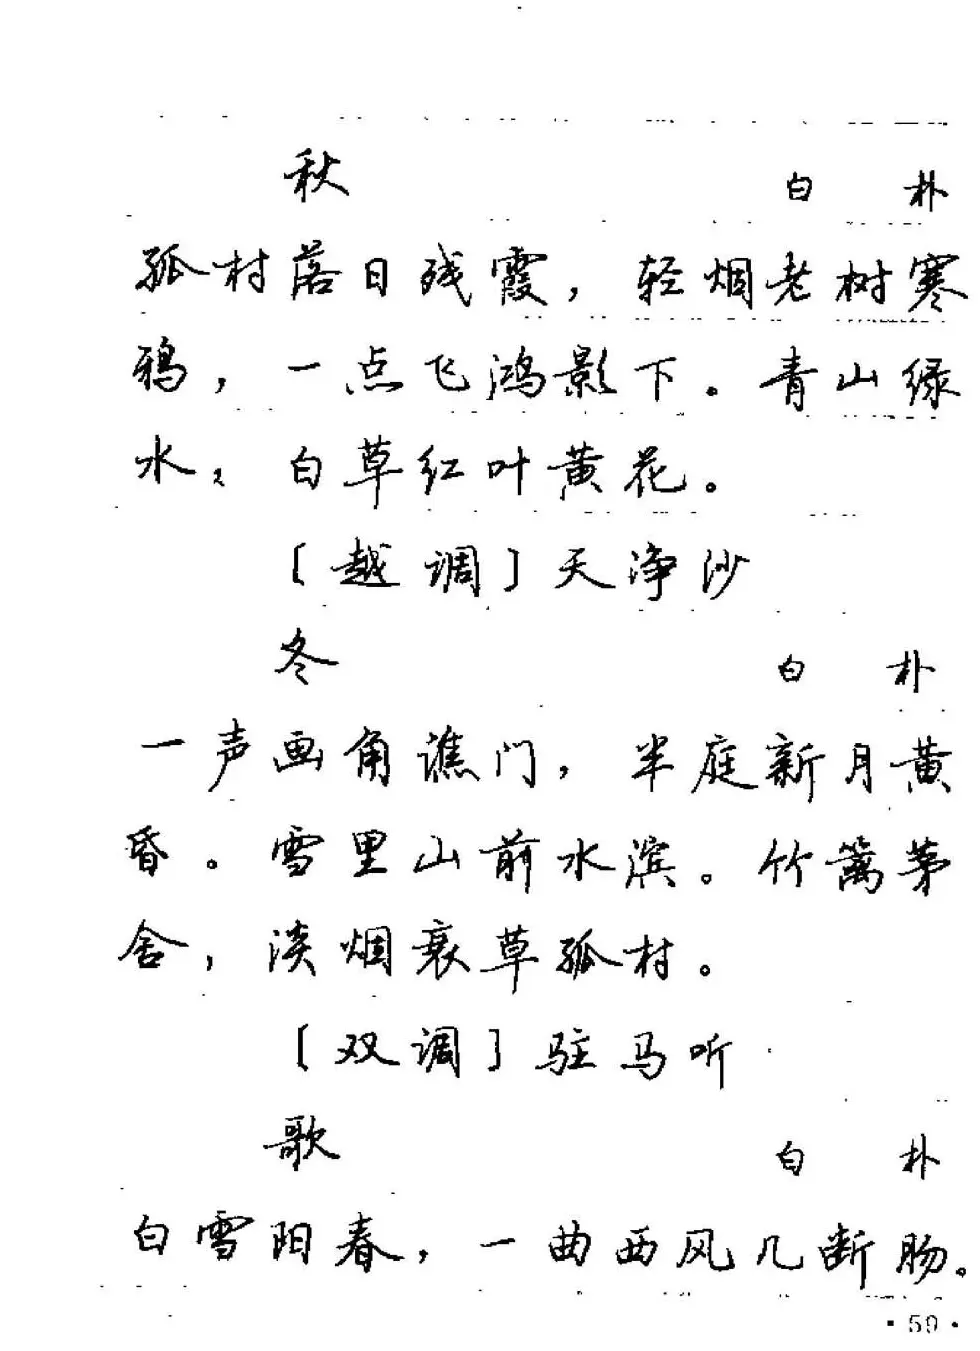 秋 白 朴
孤村落日残霞，轻烟老树寒
鸦，一点飞鸿影下。青山绿
水，白草红叶黄花。
〔越调〕天净沙
冬 白 朴
一声画角谯门，半庭新月黄
昏。雪里山前水滨。竹篱茅
舍，淡烟衰草孤村。
〔双调〕驻马听
歌 白 朴
白雪阳春，一曲西风几断肠。
·59·